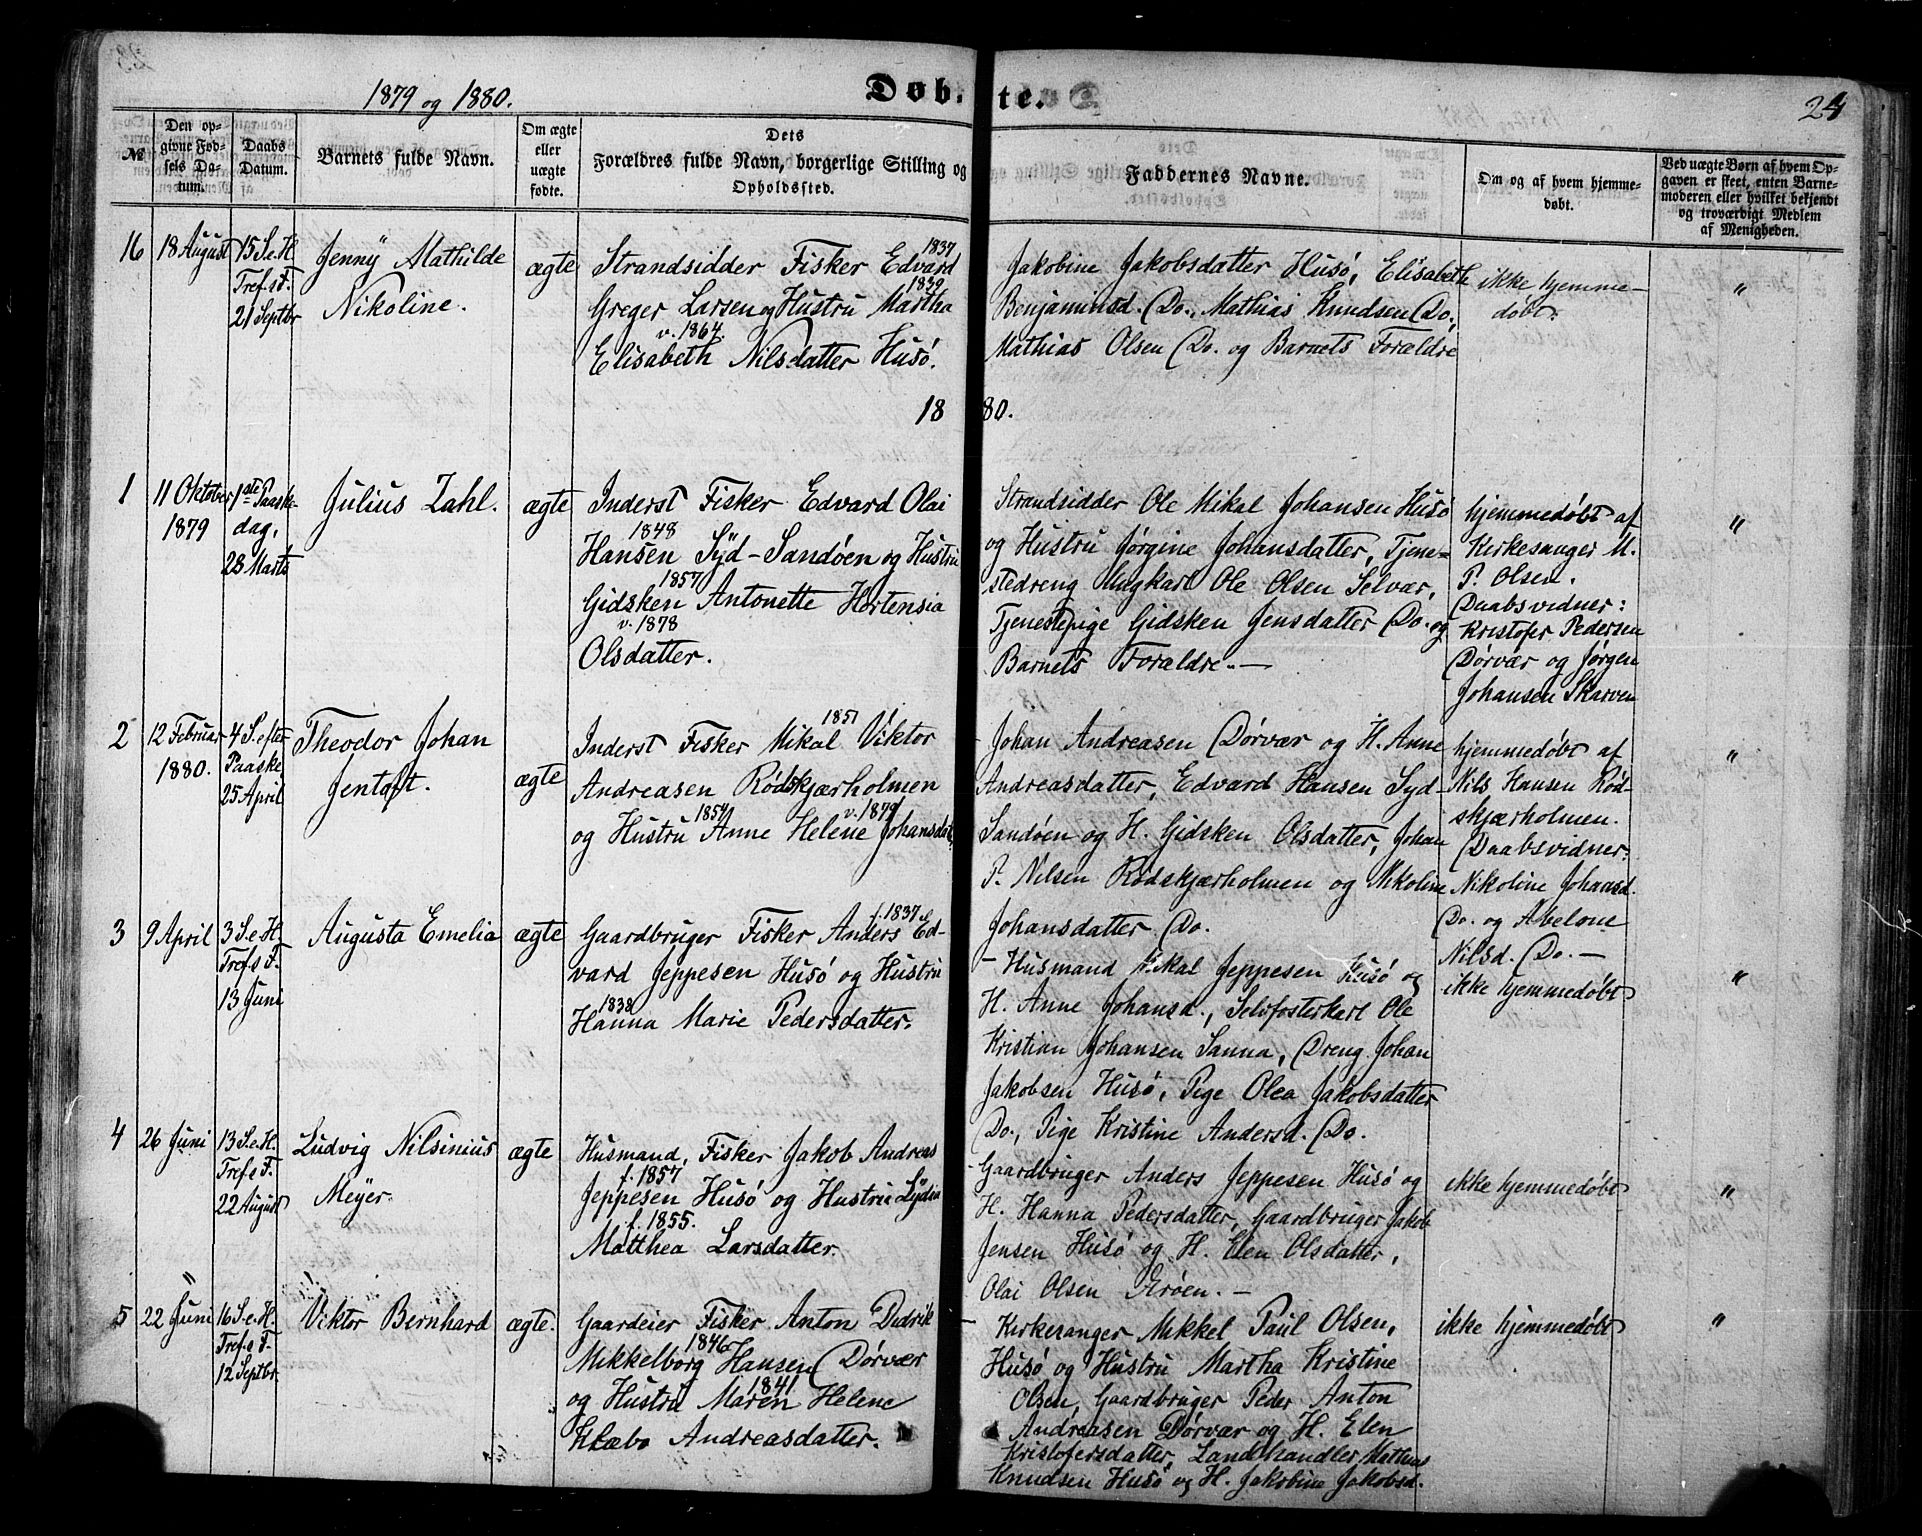 1879 og 1880.
Døbte.
24
№
Den opgivne Fødsels Datum.
Daabs Datum.
Barnets fulde Navn.
Om ægte eller uægte fødte.
Dets Forældres fulde Navn, borgerlige Stilling og Opholdssted.
Faddernes Navne.
Om og af hvem hjemmedøbt.
Ved uægte Børn af hvem Opgaven er skeet, enten Barnemoderen eller hvilket bekjendt og troværdigt Medlem af Menigheden.
16
18 August
15 S. e. H.
Tref.s F.
21 Septbr
Jenny Mathilde
Nikoline.
ægte
Strandsidder Fisker Edvard
1837
Greger Larsen og Hustru Martha
1839
v. 1864.
Elisabeth Nilsdatter Husö.
Jakobine Jakobsdatter Husö, Elisabeth
Benjaminsd. Do., Mathias Knudsen Do.,
Mathias Olsen Do. og Barnets Forældre
ikke hjemme-
døbt.
"
1880.
1
11 Oktober
1879
1ste Paaske-
dag.
28 Marts
Julius Zahl.
ægte
Inderst Fisker Edvard Olai
1848
Hansen Syd-Sandöen og Hustru
1857
Gidsken Antonette Hortensia
v. 1878
Olsdatter.
Strandsidder Ole Mikal Johansen Husö
og Hustru Jørgine Johansdatter, Tjene-
stedreng Ungkarl Ole Olsen Selvær,
Tjenestepige Gidsken Jensdatter Do. og
Barnets Forældre. —
hjemmedøbt af
Kirkesanger M.
P. Olsen.
Daabsvidner:
Kristofer Pedersen
Dörvær og Jørgen
Johansen Skarven
"
2
12 Februar
1880.
4 S. efter
Paaske
25 April
Theodor Johan
Jentoft.
ægte
1851
Inderst Fisker Mikal Viktor
Andreasen Rödskjærholmen
1854
v. 1879
og Hustru Anne Helene Johansdat.
Johan Andreasen Dörvær og H. Anne
Andreasdatter, Edvard Hansen Syd-
Sandöen og H. Gidsken Olsdatter, Johan
P. Nilsen Rödskjærholmen og Nikoline
Johansdatter Do.
hjemmedøbt af
Nils Hansen Röd-
skjærholmen.
Daabsvidner:
Nikoline Johansd.
Do. og Abelone
Nilsd. Do. —
"
3
9 April
3 S. e. H.
Tref.s F.
13 Juni
Augusta Emelia
ægte
f. 1837
Gaardbruger Fisker Anders Ed-
vard Jeppesen Husö og Hustru
1838
Hanna Marie Pedersdatter.
— Husmand Mikal Jeppesen Husö og
H. Anne Johansd., Selvfosterkarl Ole
Kristian Johansen Sanna, Dreng Johan
Jakobsen Husö, Pige Olea Jakobsdatter
Do., Pige Kristine Andersd. Do.
ikke hjemmedøbt
"
4
26 Juni
13 S. e. H.
Tref.s F.
22 August
Ludvig Nilsinius
Meyer.
ægte
Husmand, Fisker Jakob Andreas
f. 1857
Jeppesen Husö og Hustru Lydia
f. 1855.
Matthea Larsdatter.
— Gaardbruger Anders Jeppesen Husö og
H. Hanna Pedersdatter, Gaardbruger Jakob
Jensen Husö og H. Elen Olsdatter,
Olai Olsen Gröen. —
ikke hjemmedøbt
"
5
22 Juni
"
16 S. e. H.
Tref.s F.
12 Septbr.
Viktor Bernhard
ægte.
Gaardeier Fisker Anton Didrik
1846
Mikkelborg Hansen Dörvær
1841
og Hustru Maren Helene
Klæbo Andreasdatter.
— Kirkesanger Mikkel Paul Olsen,
Husö og Hustru Martha Kristine
Olsen, Gaardbruger Peder Anton
Andreasen Dörvær og H. Elen
Kristofersdatter, Landhandler Mathias
Knudsen Husö og H. Jakobine Jakobsd.
ikke hjemmedøbt
"